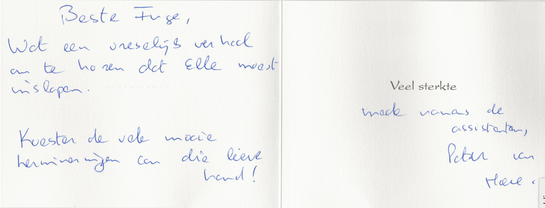 Beste
Wat een vreselijk verhaal
om te horen dat Elle moest
inslapen.
Koester de vele mooie
herinneringen aan die lieve
hond!
Veel sterkte
mede namens de
assistenten,
Peter van